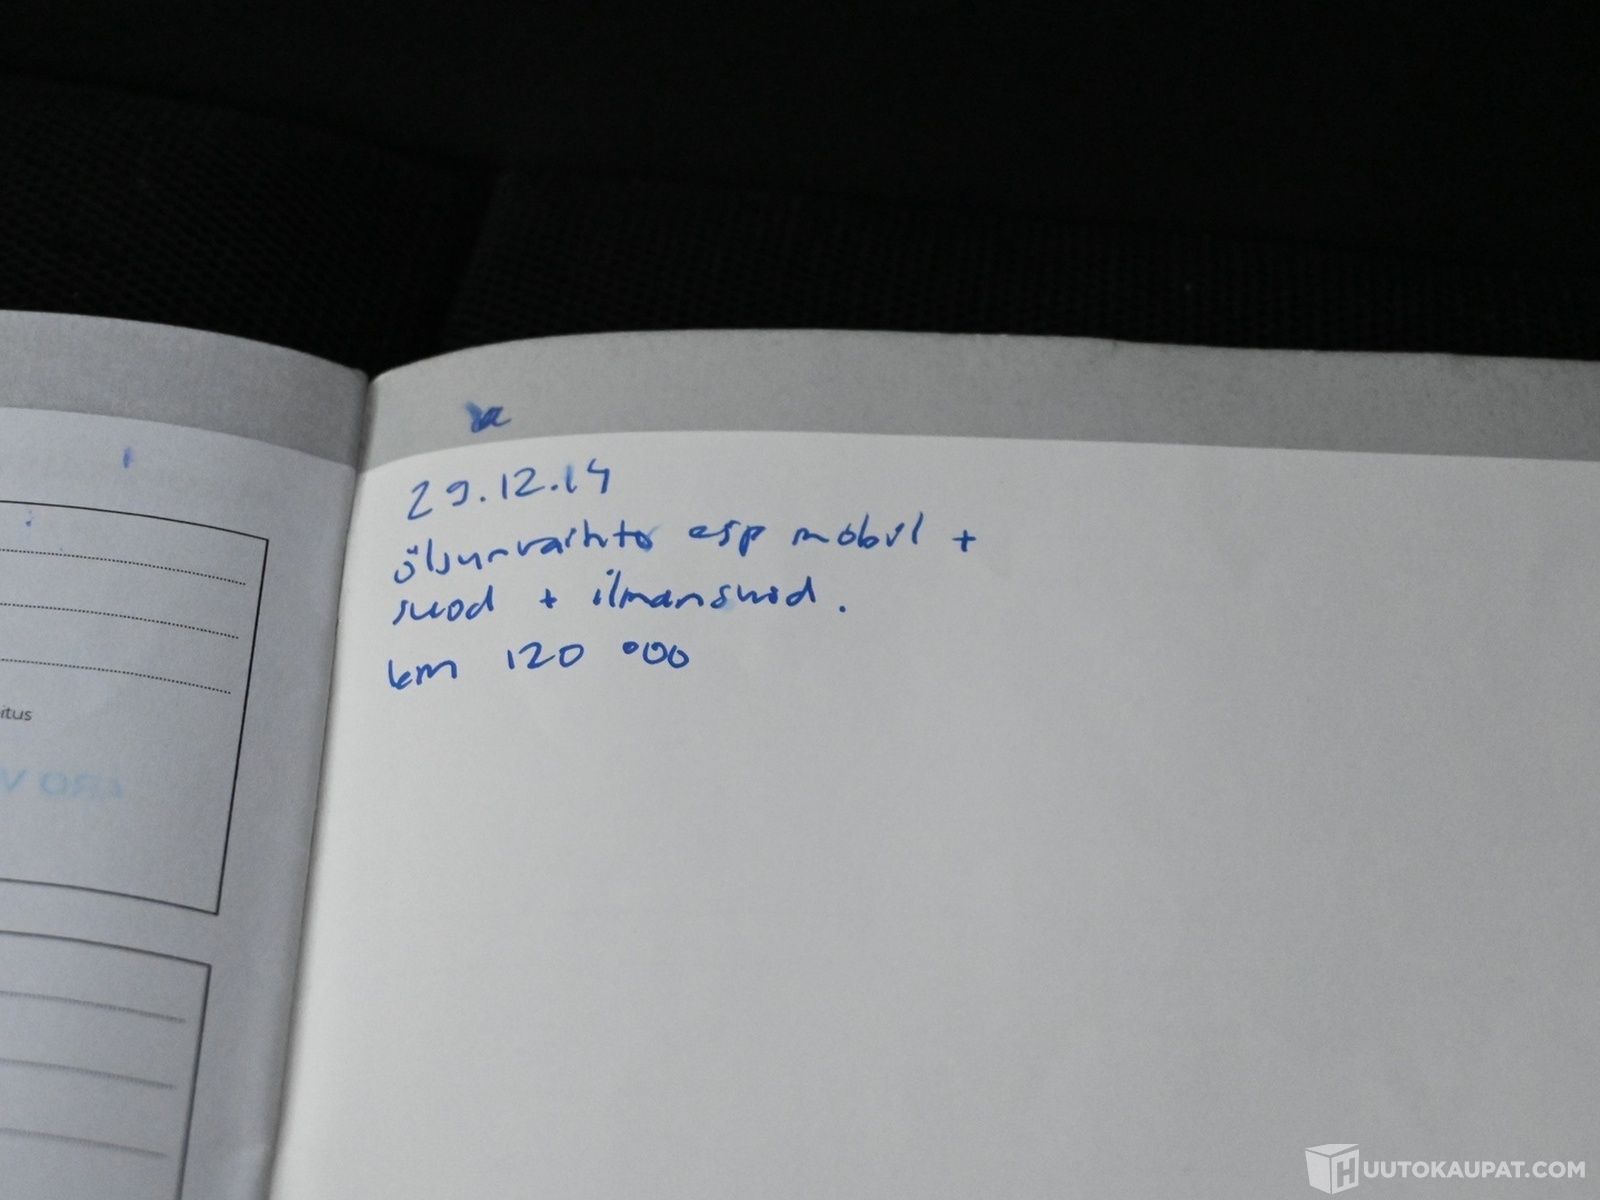 29.12.14
öljynvaihto esp mobil +
suod + ilmansuod.
km 120 000
itus
HUUTOKAUPAT.COM